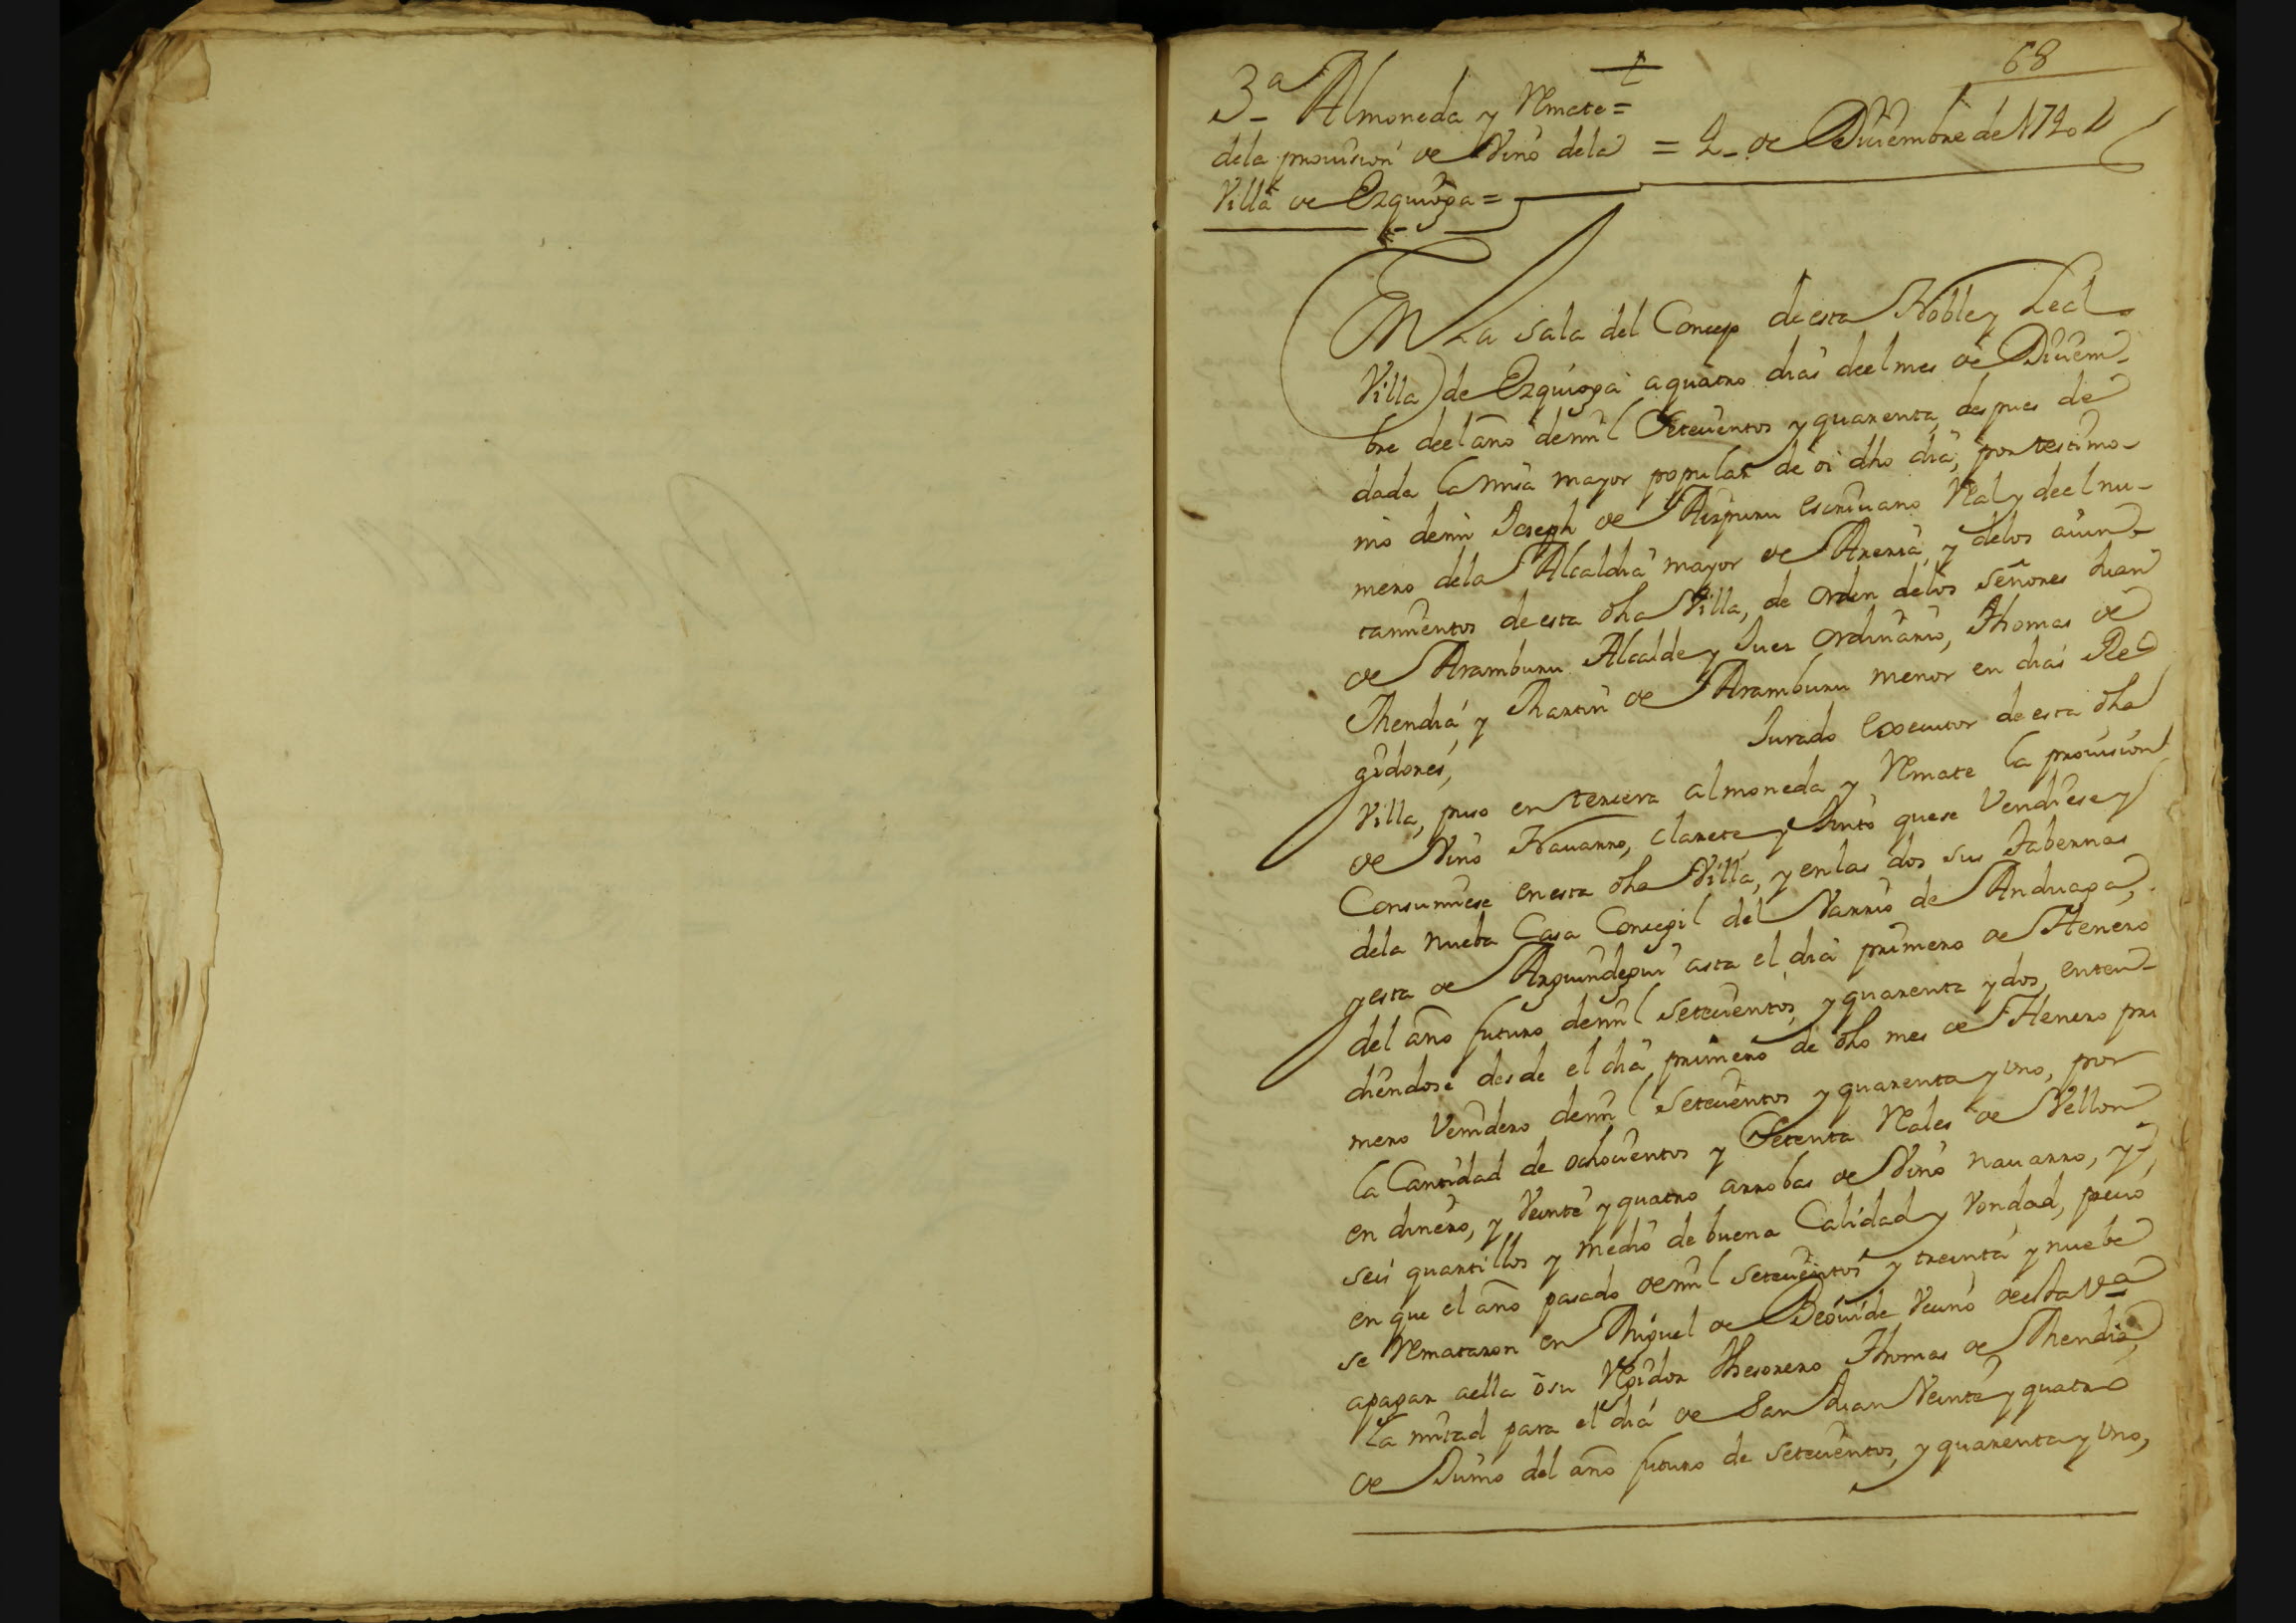 68
3ª Almoneda y Rmate=
dela prouision de Vino dela = 4 de Diziembre de 1740
Villa de Ezquioga=
En La sala del Concejo de esta Noble y Leal
Villa de Ezquioga a quatro dias de el mes de Diciem-
bre de el año de mil Setecientos y quarenta, despues de
dada la misa mayor popular de oi dho dia, por testimo-
nio de mi Joseph de Aizpuru escriuano Real y de el nu-
mero dela Alcaldia mayor de Areria, y delos aiun-
tamientos de esta dha Villa, de orden delos señores Juan
de Aramburu Alcalde y Juez ordinario, Thomas de
Mendia, y Martin de Aramburu menor en dias Re
gidores, Jurado Executor de esta dha
Villa, puso en tercera almoneda y Rmate la prouision
de Vino Nauarro, clarete, y tinto que se Vendiese y
Consumiese en esta dha Villa, y en las dos sus Tabernas
dela nueba Casa Concegil del Varrio de Anduaga,
y esta de Arguindegui asta el dia primero de Henero
del año futuro de mil setecientos, y quarenta y dos, enten-
diendose desde el dia primero de dho mes de Henero pri
mero Venidero de mil setecientos y quarenta y uno, por
la Cantidad de ochocientos y Setenta Rales de Vellon
en dinero, y Veinte y quatro arrobas de Vino nauarro, y
seis quartillos y medio de buena Calidad y Vondad, precio
en que el año pasado de mil setecientos y treinta y nuebe
se Rmataron en Miguel de Beouide Vecino de esta Vª
a pagar a ella o su Rgidor thesorero Thomas de Mendia,
la mitad para el dia de San Juan Veinte y quatro
de Junio del año futuro de setecientos, y quarenta y uno,